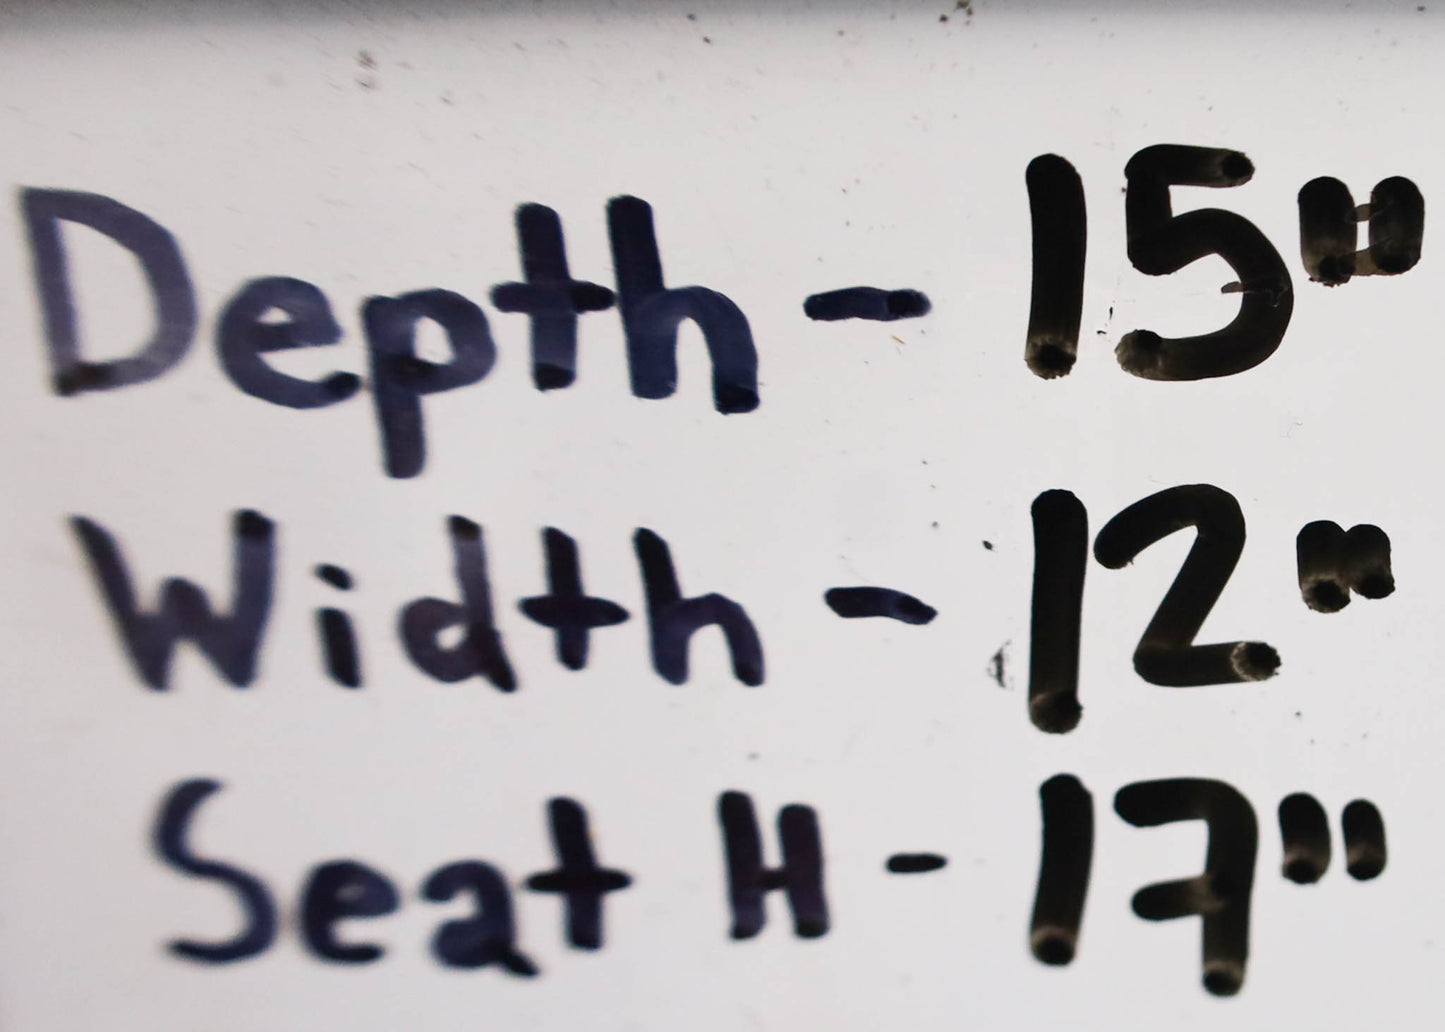 Depth - 15"
Width - 12"
Seat H - 17"